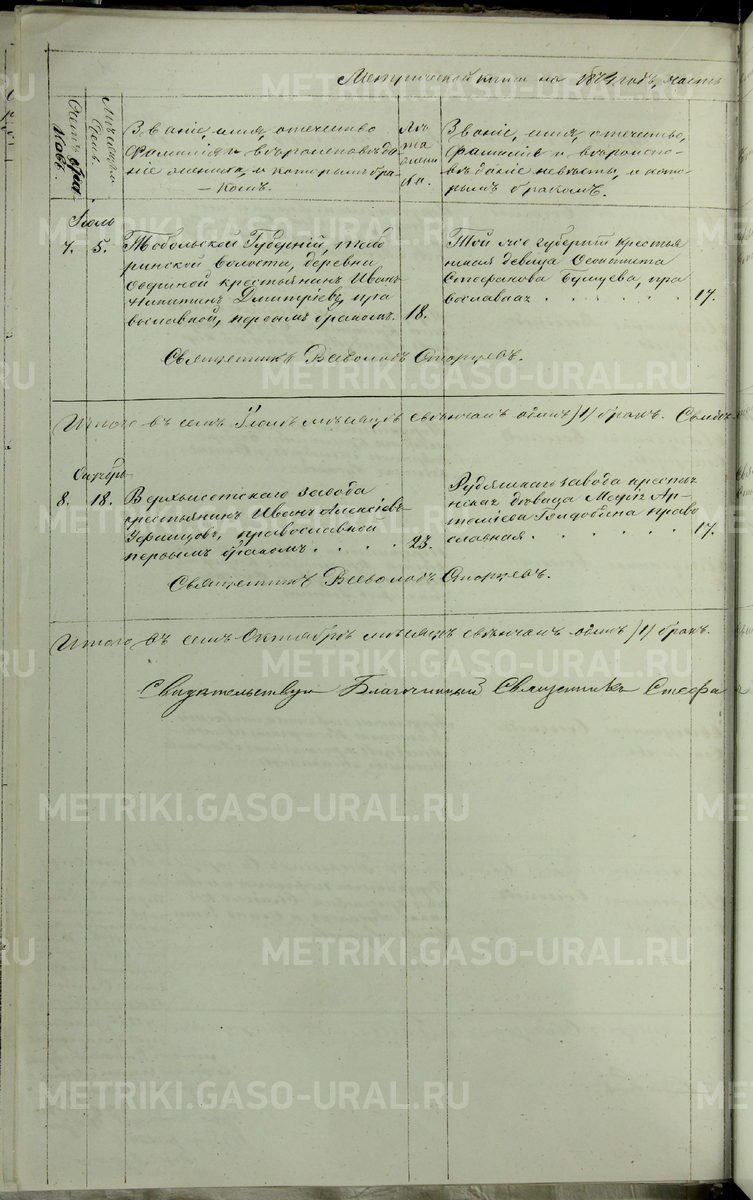 Метрической книги на 1874 годъ, часть
Счетъ браковъ.
Мѣсяцъ и день.
Званіе, имя, отечество
фамилія и вѣроисповѣда-
ніе жениха, и которымъ бра-
комъ.
Лѣ
та
жени
ха.
Званіе, имя, отечество,
фамилія и вѣроиспо-
вѣданіе невѣсты, и кото-
рымъ бракомъ.
Іюль
7. 5. Тобольской Губерніи,
ринской волости, деревни
крестьянинъ Иванъ
Никитинъ Дмитріевъ, пра
вославной, первымъ бракомъ. 18.
Той же губерніи крестья
нская девица
Стефанова пра
вославная 17.
Священникъ Всеволодъ Старцевъ.
Итого въ семъ Іюлѣ мѣсяцѣ свѣнчанъ одинъ /1/ бракъ.
Октябрь
8. 18. Верхъисетскаго завода
крестьянинъ Иванъ Алексіевъ
Уфимцовъ, православной
первымъ бракомъ 23.
Рудянскаго завода крестья
нская дѣвица Марія Ар-
теміева Голдобина право
славная 17.
Священникъ Всеволодъ Старцевъ.
Итого въ семъ Октябрѣ мѣсяцѣ свѣнчанъ одинъ /1/ бракъ.
Свидѣтельствую Благочинный Священникъ Стефа
METRIKI.GASO-URAL.RU